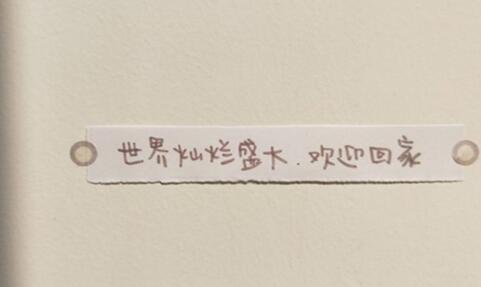 世界灿烂盛大.欢迎回家